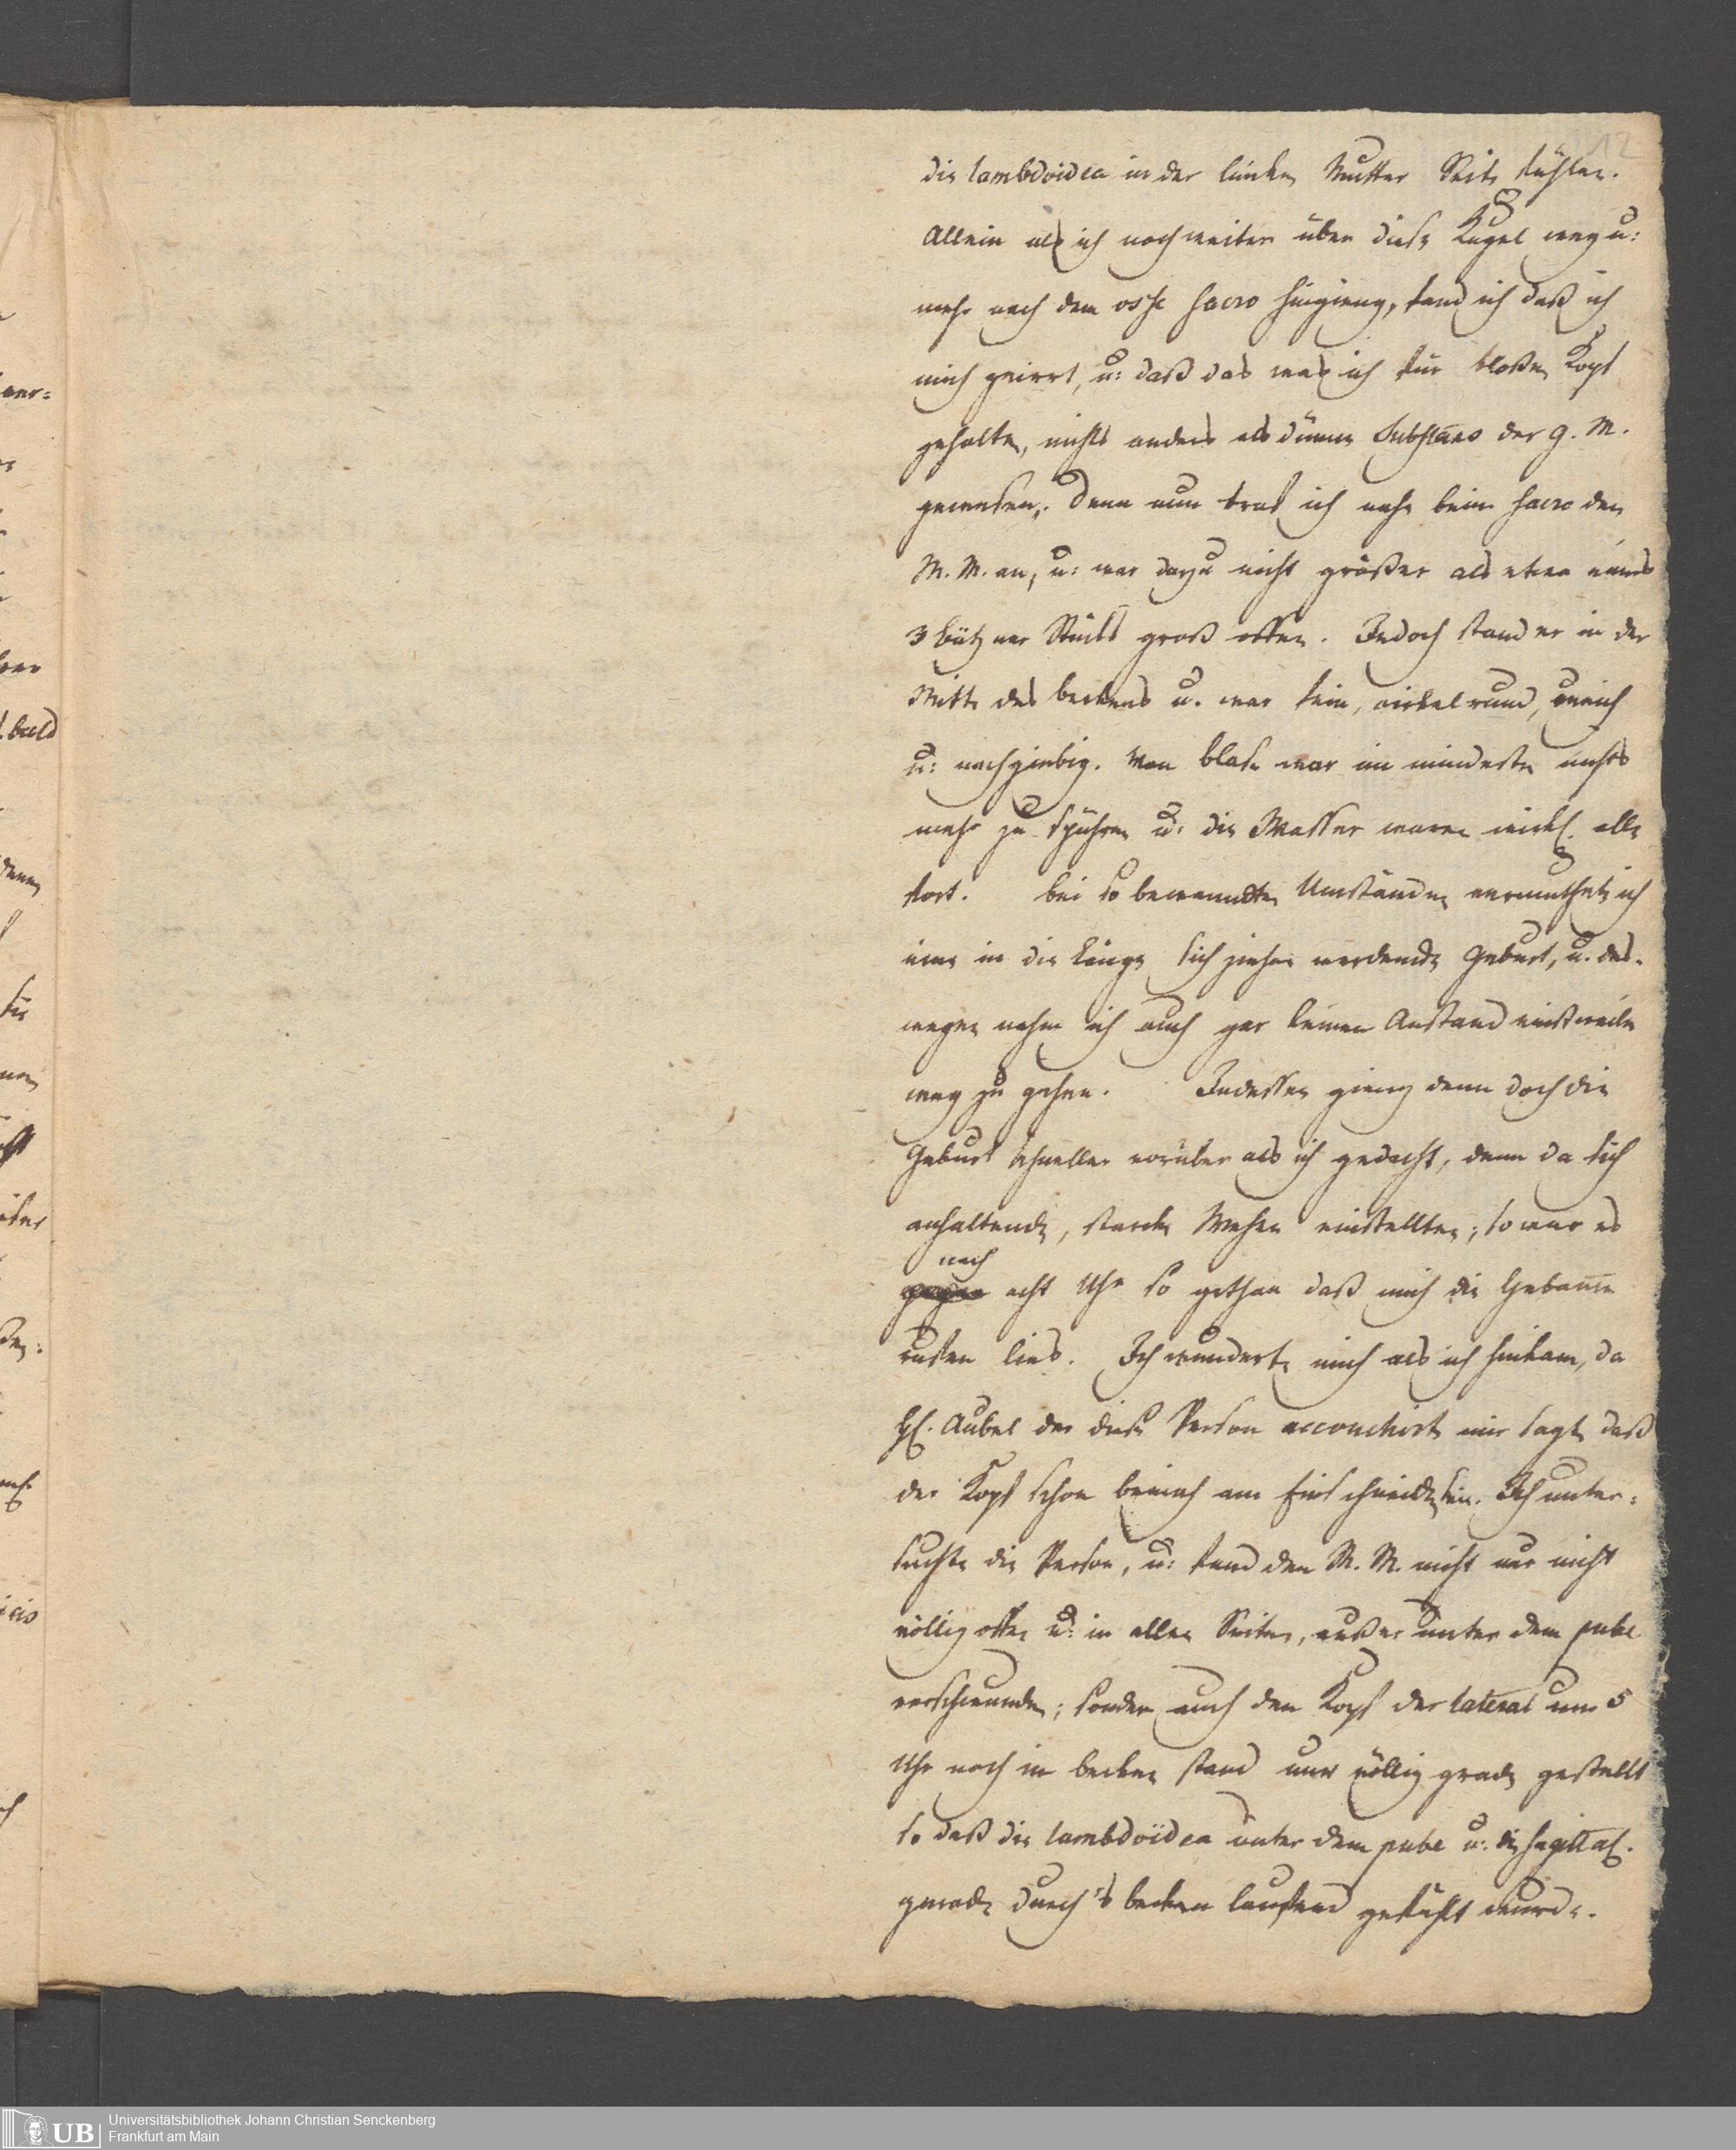 12
die lambdoidea in der linken Mutter Seite fühlen.
Allein als ich noch weiter über diese Kugel weg u:
mehr nach dem osse sacro hingieng, fand ich daß ich
mich geirrt, u: daß das was ich für bloßen Kopf
gehalten, nichts anders als dünne Substanz der G. M.
gewesen. Denn nun traf ich nahe beim sacro den
M. M. an, u: war dazu nicht größer als etwa eines
3 bätzner Stücks groß offen. Jedoch stand er in der
Mitte des beckens u. war fein, cirkelrund, weich
u: nachgiebig. Von blase war im mindesten nichts
mehr zu spühren u: die Wasser waren wirkl. alle
fort. bei so bewandten Umständen vermuthete ich
eine in die Länge sich ziehen werdende Geburt, u. des-
wegen nahm ich auch gar keinen Anstand einstweilen
weg zu gehen. Indessen gieng denn doch die
Geburt schneller vorüber als ich gedacht, denn da sich
anhaltende, starcke Wehen einstellten; so war es
nach
gegen acht Uhr so gethan daß mich die Hebamme
rufen lies. Ich wunderte mich als ich hinkam, da
H. Aubel der diese Person accouchirte mir sagte daß
der Kopf schon beinah am Einschneiden sei. Ich unter=
suchte die Person, u: fand den M. M. nicht nur nicht
völlig offen u: in allen Seiten, außer unter dem pube
verschwunden; sondern auch den Kopf der lateral um 5
Uhr noch im becken stand nun völlig grade gestellt
so daß die lambdoïdea unter dem pube u: die sagittal.
gerade durch's becken laufend gefühlt wurde.
Universitätsbibliothek Johann Christian Senckenberg
Frankfurt am Main
UB